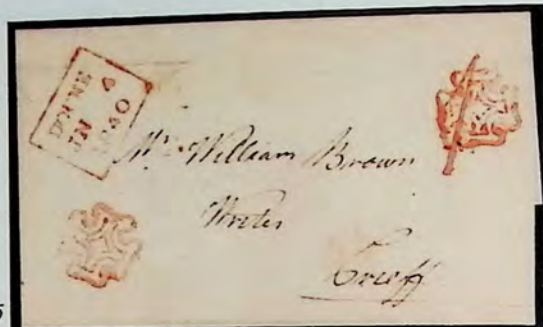 DOUNE
JN 4
1840
1
Mr. William Brown
Writer
Crieff
5